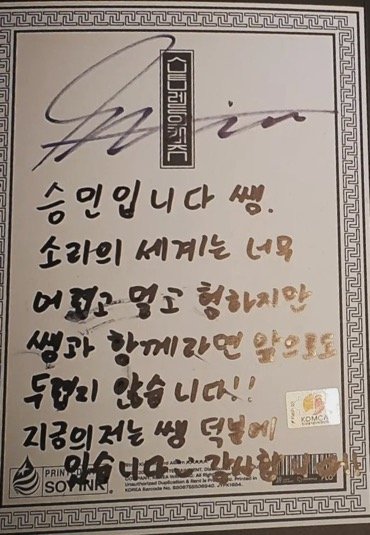 승민입니다 쌩.
소리의 세계는 너무
어렵고 멀고 험하지만
쌩과 함께라면 앞으로도
두렵지 않습니다!
지금의 저는 쌩 덕분에
있습니다 감사합니다
KOMCA
PRINTED
SOY INK
Unauthorized Duplication & Rent is
KOREA Barcode No.